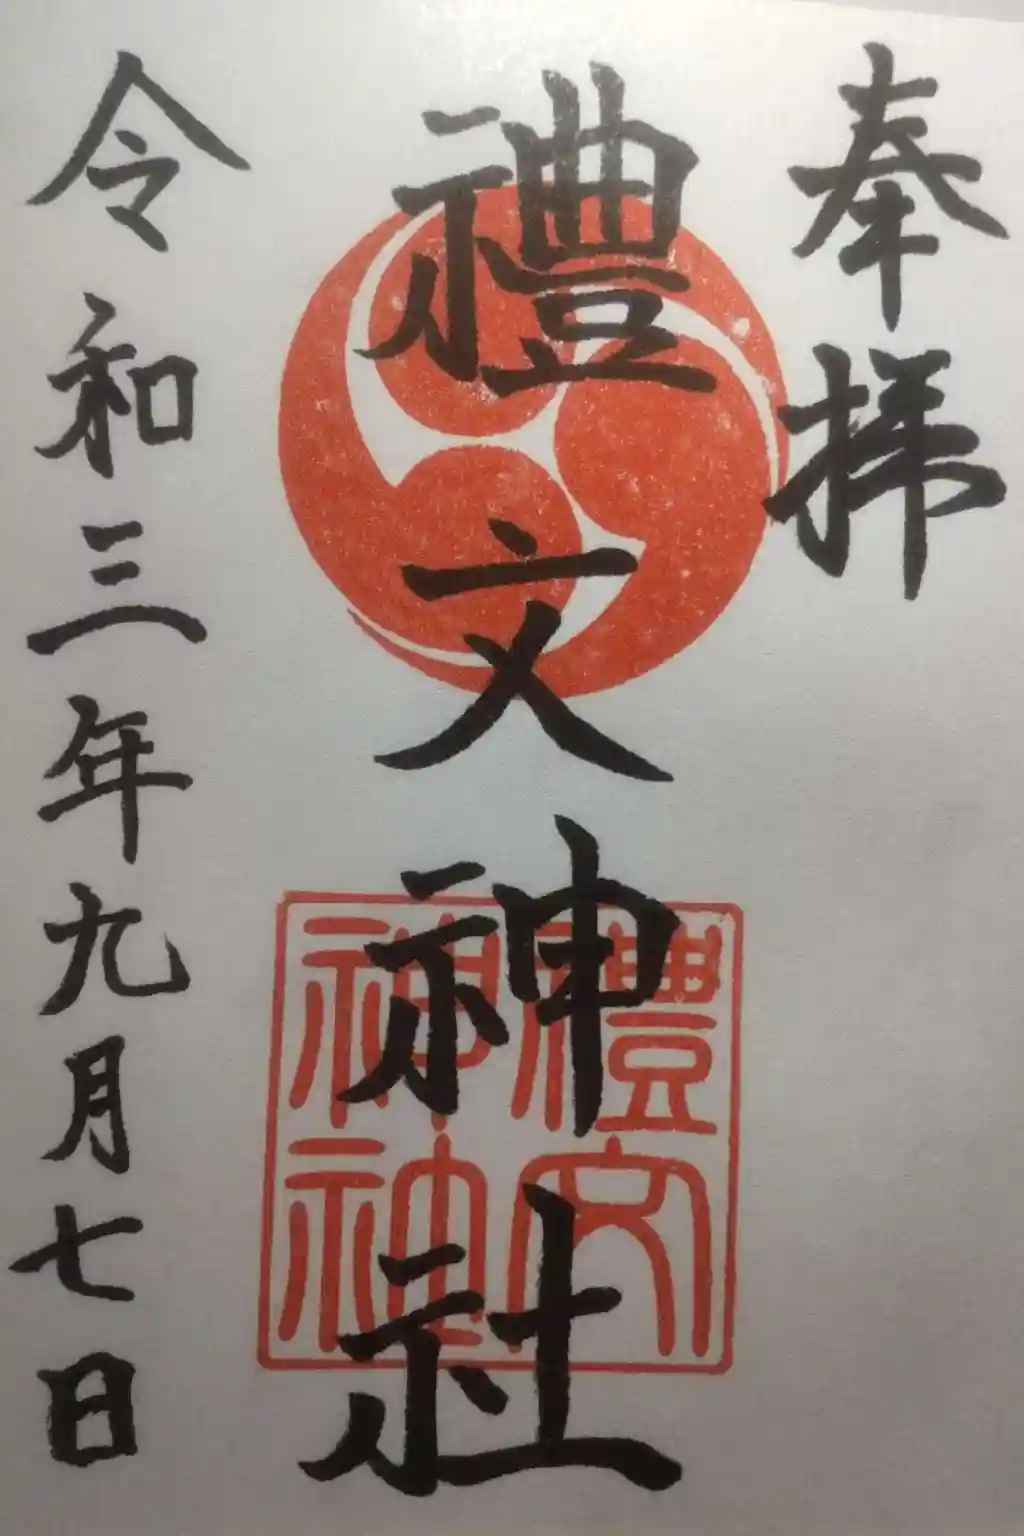 奉拝
禮文神社
令和三年九月七日
禮文
神社